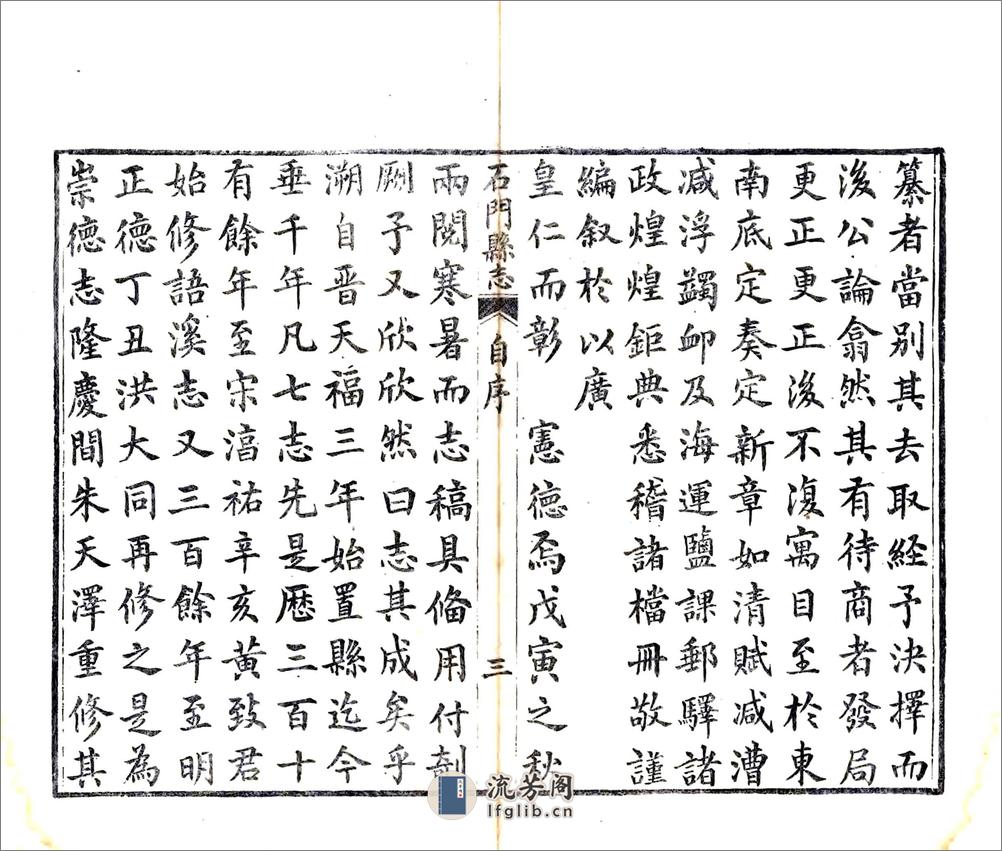 纂者當别其去取經予決擇而
後公論翕然其有待商者發局
更正更正後不復寓目至於東
南底定奏定新章如清賦减漕
减浮蠲卹及海運鹽課郵驛諸
政煌煌鉅典悉稽諸檔冊敬謹
編叙於以廣
皇仁而彰　憲德焉戊寅之秋
石門縣志　自序　三
兩閱寒暑而志稿具俻用付剞
劂予又欣欣然曰志其成矣乎
溯自晋天福三年始置縣迄今
垂千年凡七志先是歷三百十
有餘年至宋湻祐辛亥黄致君
始修語溪志又三百餘年至明
正德丁丑洪大同再修之是為
崇德志隆慶間朱天澤重修其
流芳阁
lfglib.cn